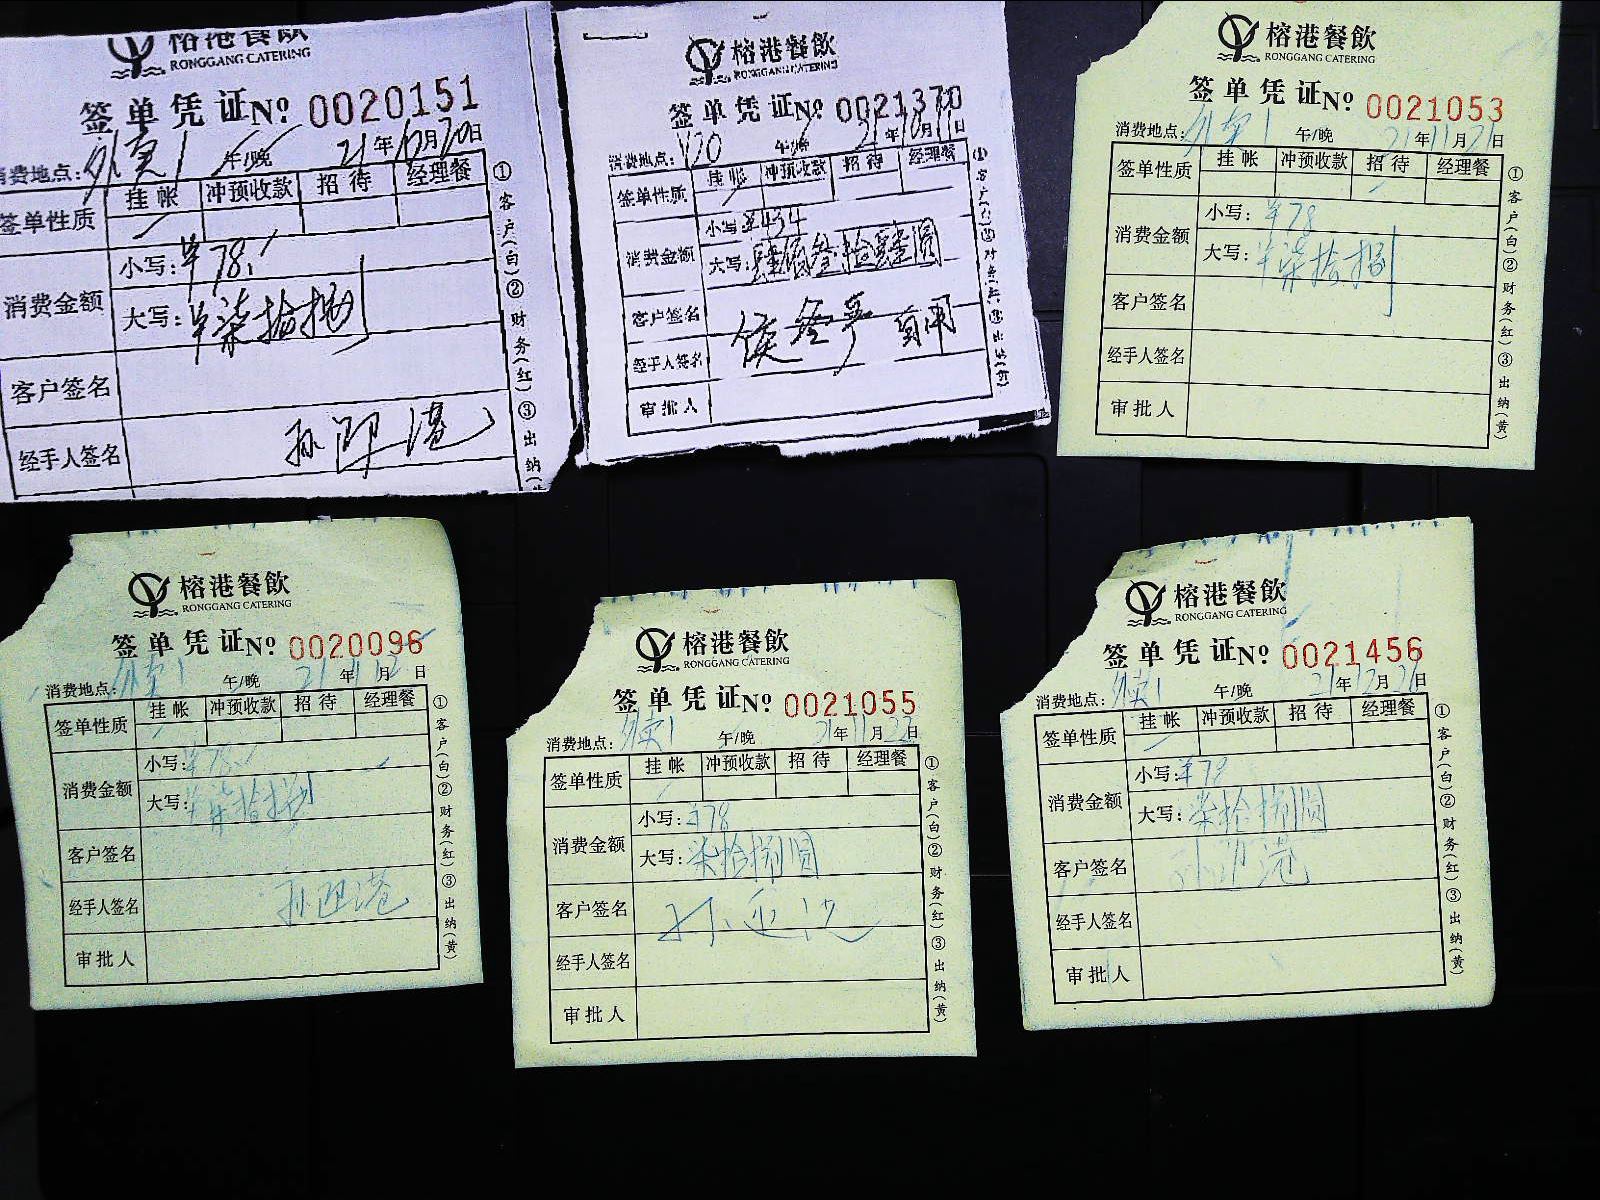 榕港餐飲
RONGGANG CATERING
签单凭证№ 0020151
消费地点: 外卖1 午/晚 21年10月20日
签单性质 挂帐 冲预收款 招待 经理餐
消费金额 小写:￥78
大写:￥柒拾捌
客户签名
经手人签名
①客户(白)②财务(红)③出纳
榕港餐飲
RONGGANG CATERING
签单凭证№ 0021370
消费地点: V20 午/晚 21年10月11日
签单性质 挂帐 冲预收款 招待 经理餐
消费金额 小写:￥434
大写:肆佰叁拾肆圆
客户签名
经手人签名
审批人
榕港餐飲
RONGGANG CATERING
签单凭证№ 0021053
消费地点: 外卖1 午/晚 21年11月21日
签单性质 挂帐 冲预收款 招待 经理餐
消费金额 小写:￥78
大写:￥柒拾捌
客户签名
经手人签名
审批人
①客户(白)②财务(红)③出纳(黄)
榕港餐飲
RONGGANG CATERING
签单凭证№ 0020096
消费地点: 外卖1 午/晚 21年11月12日
签单性质 挂帐 冲预收款 招待 经理餐
消费金额 小写:￥78
大写:￥柒拾捌
客户签名
经手人签名
审批人
①客户(白)②财务(红)③出纳(黄)
榕港餐飲
RONGGANG CATERING
签单凭证№ 0021055
消费地点: 外卖1 午/晚 21年11月22日
签单性质 挂帐 冲预收款 招待 经理餐
消费金额 小写:￥78
大写:柒拾捌圆
客户签名
经手人签名
审批人
①客户(白)②财务(红)③出纳(黄)
榕港餐飲
RONGGANG CATERING
签单凭证№ 0021456
消费地点: 外卖1 午/晚 21年12月日
签单性质 挂帐 冲预收款 招待 经理餐
消费金额 小写:￥78
大写:柒拾捌圆
客户签名
经手人签名
审批人
①客户(白)②财务(红)③出纳(黄)